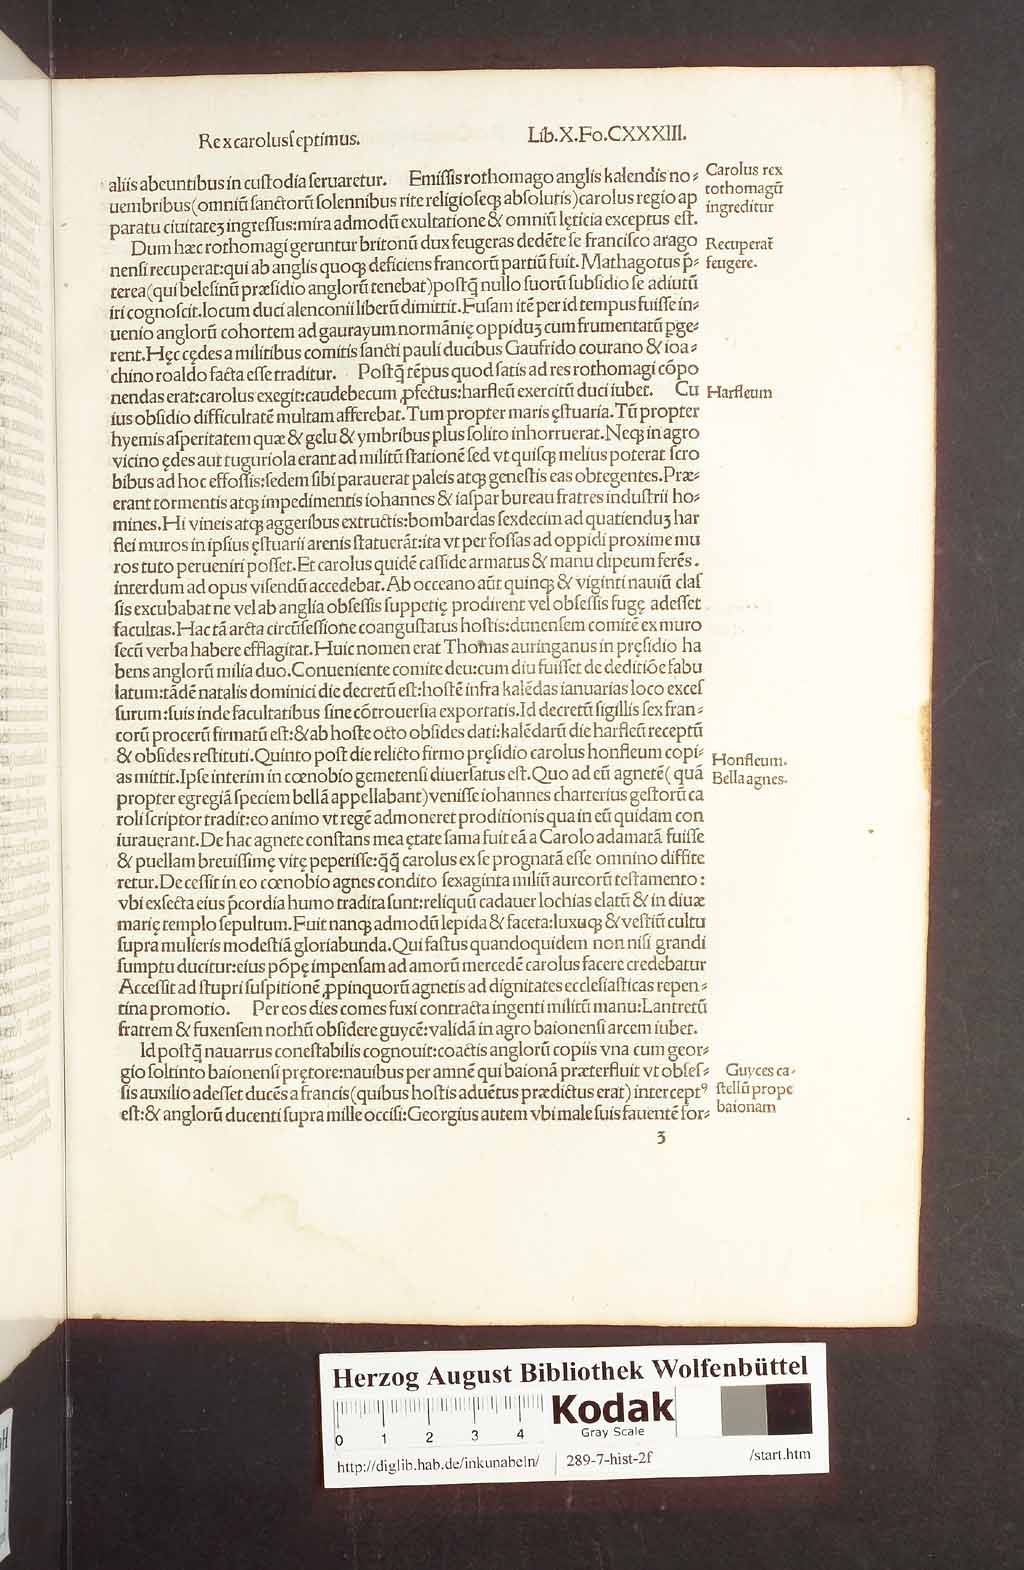 Rex carolus septimus. Lib.X.Fo.CXXXIII.
aliis abeuntibus in custodia seruaretur. Emissis rothomago anglis kalendis no⸗
uembribus (omniū sanctorū solennibus rite religioseqꝫ absolutis) carolus regio ap
paratu ciuitateꝫ ingressus: mira admodū exultatione & omniū lęticia exceptus est.
Carolus rex
rothomagū
ingreditur
Dum hæc rothomagi geruntur britonū dux feugeras dedēte se francisco arago
nensi recuperat: qui ab anglis quoqꝫ deficiens francorū partiū fuit. Mathagotus p̄⸗
terea (qui belesinū præsidio anglorū tenebat) postq̄ nullo suorū subsidio se adiutū
iri cognoscit. locum duci alenconii liberū dimittit. Fusam itē per id tempus fuisse in⸗
uenio anglorū cohortem ad gaurayum normānię oppiduꝫ cum frumentatū ꝑge⸗
rent. Hęc cędes a militibus comitis sancti pauli ducibus Gaufrido courano & ioa⸗
chino roaldo facta esse traditur. Postq̄ tēpus quod satis ad res rothomagi cōpo
nendas erat: carolus exegit: caudebecum ꝓfectus: harfleū exercitū duci iubet. Cu
ius obsidio difficultatē multam afferebat. Tum propter maris ęstuaria. Tū propter
hyemis asperitatem quæ & gelu & ymbribus plus solito inhorruerat. Neqꝫ in agro
vicino ędes aut tuguriola erant ad militū stationē sed vt quisqꝫ melius poterat scro
bibus ad hoc effossis: sedem sibi parauerat paleis atqꝫ genestis eas obtegentes. Præ⸗
erant tormentis atqꝫ impedimentis iohannes & iaspar bureau fratres industrii ho⸗
mines. Hi vineis atqꝫ aggeribus extructis: bombardas sexdecim ad quatienduꝫ har
flei muros in ipsius ęstuarii arenis statuerāt: ita vt per fossas ad oppidi proxime mu
ros tuto perueniri posset. Et carolus quidē casside armatus & manu clipeum ferēs.
interdum ad opus visendū accedebat. Ab occeano aūt quinqꝫ & viginti nauiū clas
sis excubabat ne vel ab anglia obsessis suppetię prodirent vel obsessis fugę adesset
facultas. Hac tā arcta circūsessione coangustatus hostis: dunensem comitē ex muro
secū verba habere efflagitat. Huic nomen erat Thomas auringanus in pręsidio ha
bens anglorū milia duo. Conueniente comite deu: cum diu fuisset de deditiōe fabu
latum: tādē natalis dominici die decretū est: hostē infra kalēdas ianuarias loco exces
surum: suis inde facultatibus sine cōtrouersia exportatis. Id decretū sigillis sex fran⸗
corū procerū firmatū est: & ab hoste octo obsides dati: kalēdarū die harfleū receptū
& obsides restituti. Quinto post die relicto firmo pręsidio carolus honfleum copi⸗
as mittit. Ipse interim in cœnobio gemetensi diuersatus est. Quo ad eū agnetē (quā
propter egregiā speciem bellā appellabant) venisse iohannes charterius gestorū ca
roli scriptor tradit: eo animo vt regē admoneret proditionis qua in eū quidam con
iurauerant. De hac agnete constans mea ętate fama fuit eā a Carolo adamatā fuisse
& puellam breuissimę vitę peperisse: q̄q̄ carolus ex se prognatā esse omnino diffite
retur. Decessit in eo cœnobio agnes condito sexaginta miliū aureorū testamento:
vbi exsecta eius p̄cordia humo tradita sunt: reliquū cadauer lochias elatū & in diuæ
marię templo sepultum. Fuit nanqꝫ admodū lepida & faceta: luxuqꝫ & vestiū cultu
supra mulieris modestiā gloriabunda. Qui fastus quandoquidem non nisi grandi
sumptu ducitur: eius pōpę impensam ad amorū mercedē carolus facere credebatur
Accessit ad stupri suspitionē ꝓpinquorū agnetis ad dignitates ecclesiasticas repen⸗
tina promotio. Per eos dies comes fuxi contracta ingenti militū manu: Lantretū
fratrem & fuxensem nothū obsidere guycē: validā in agro baionensi arcem iubet.
Id postq̄ nauarrus conestabilis cognouit: coactis anglorū copiis vna cum geor⸗
gio soltinto baionensi prętore: nauibus per amnē qui baionā præterfluit vt obses⸗
sis auxilio adesset ducēs a francis (quibus hostis aduētus prædictus erat) intercept⁹
est: & anglorū ducenti supra mille occisi: Georgius autem vbi male suis fauentē for⸗
Recuperat̄
feugere.
Harfleum
Honfleum.
Bella agnes.
Guyces ca⸗
stellū prope
baionam
ꝫ
Herzog August Bibliothek Wolfenbüttel
Kodak
Gray Scale
0 1 2 3 4
http://diglib.hab.de/inkunabeln/ 289-7-hist-2f /start.htm